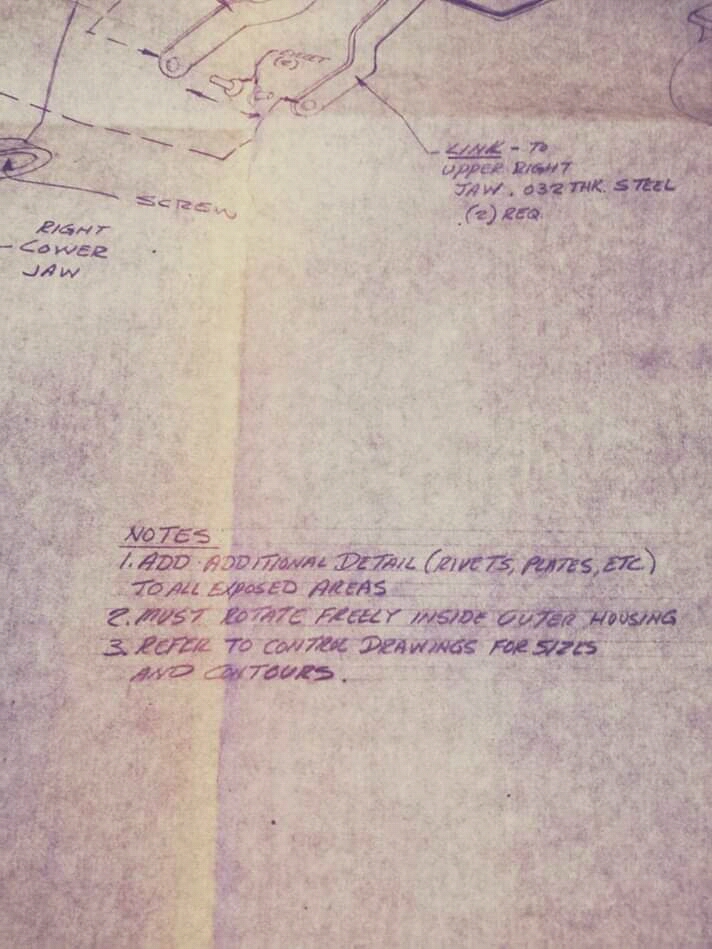 (2)
LINK - TO
UPPER RIGHT
JAW . 032 THK. STEEL
(2) REQ.
SCREW
RIGHT
LOWER
JAW
NOTES
1. ADD ADDITIONAL DETAIL (RIVETS, PLATES, ETC)
TO ALL EXPOSED AREAS
2. MUST ROTATE FREELY INSIDE OUTER HOUSING
3. REFER TO CONTROL DRAWINGS FOR SIZES
AND CONTOURS.